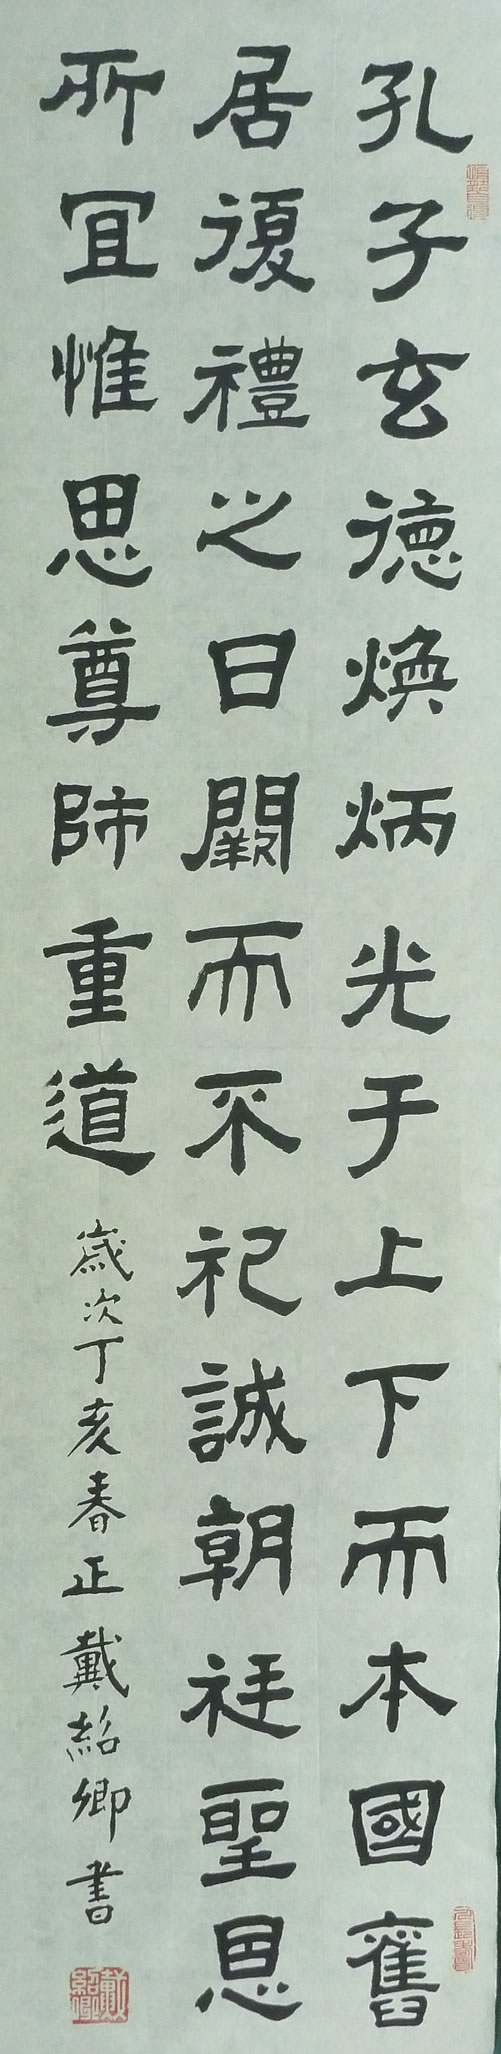 孔子玄德煥炳光于上下而本國舊
居復禮之日闕而不祀誠朝廷聖恩
所宜惟思尊師重道
歲次丁亥春正戴紹卿書